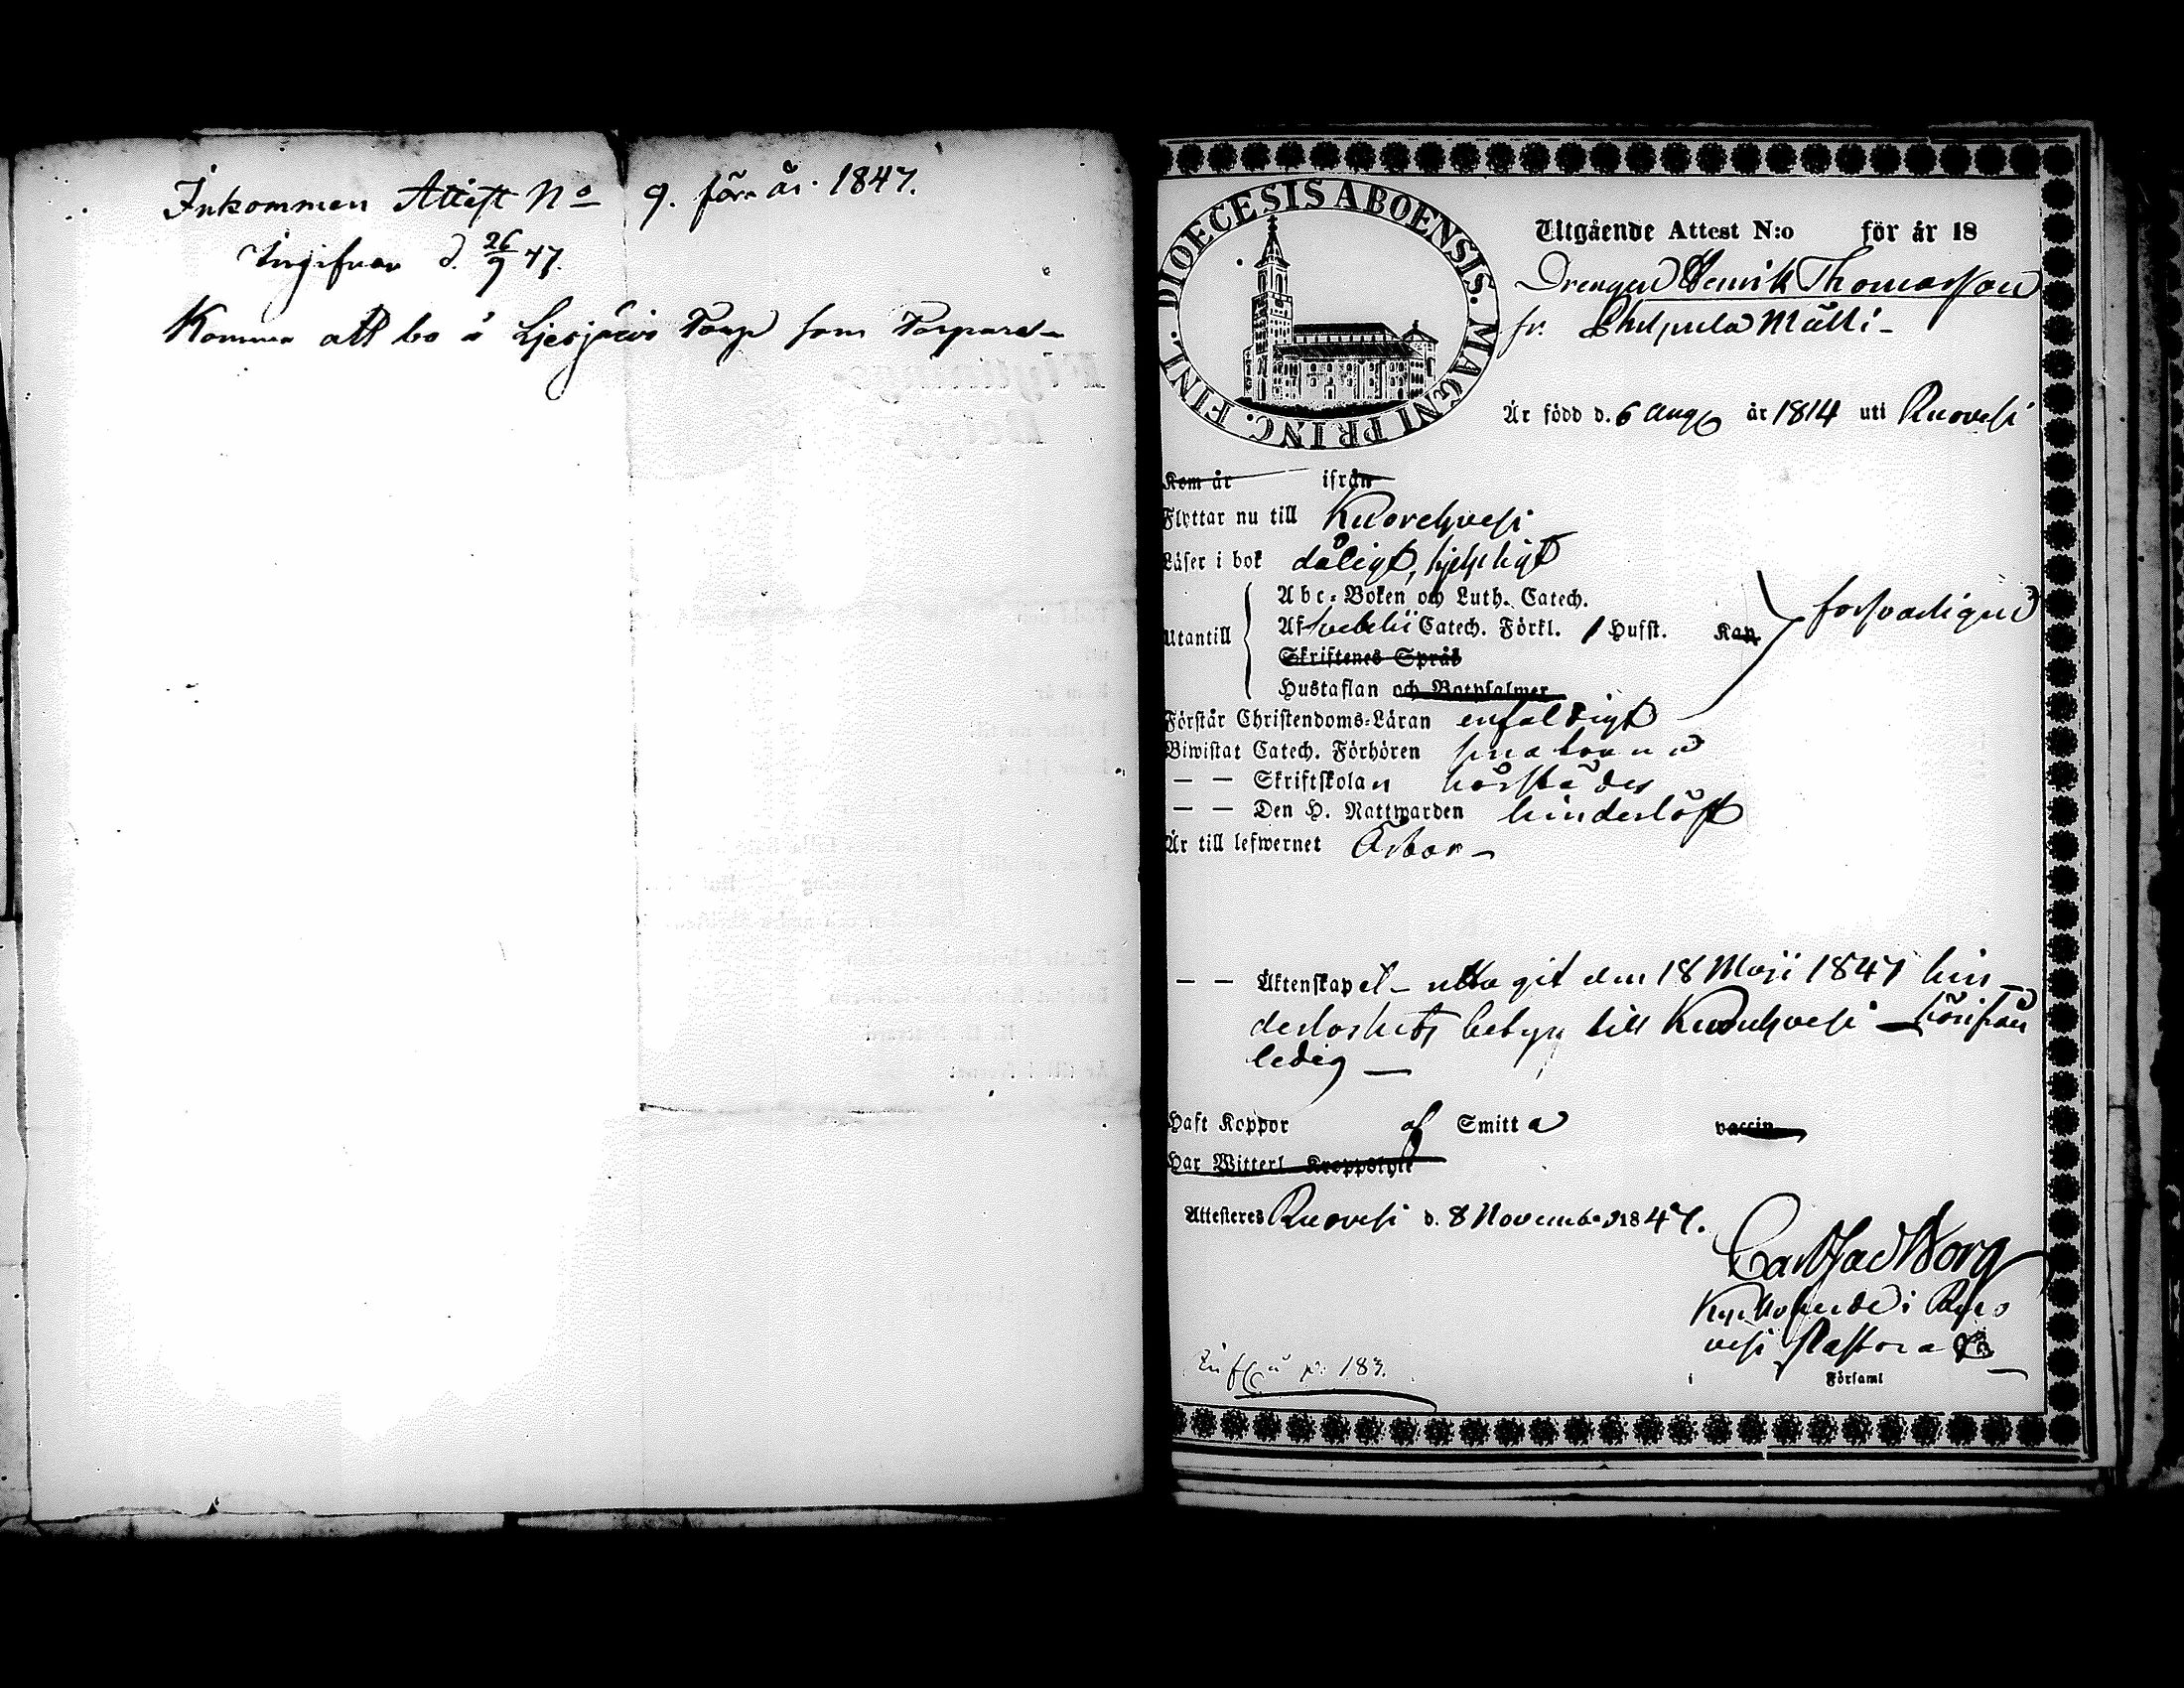 Inkommen Attest No 9. för år 1847.
Ingifven d. 26/9 47.
Kommer att bo å Torp som Torpare
DIOECESIS ABOENSIS. MAGNI PRINC. FINL.
Utgående Attest N:o för år 18
Drengen Henrik Thomasson
fr. Mälli
Är född d. 6 Aug år 1814 uti Ruovesi
Kom år ifrån
Flyttar nu till Kuorehvesi
Läser i bok dåligt, hjelpligt
Abc-Boken och Luth. Catech.
Utantill Af Svebelii Catech. Förkl. 1 Husst. Kap försvarligen
Skriftenes Språk
Hustaflan och Botpsalmer
Förstår Christendoms-Läran enfaldigt
Biwistat Catech. Förhören
— — Skriftskolan härstädes
— — Den H. Nattwarden hinderlöst
Är till lefwernet Ärbar
— — Äktenskapet uttagit den 18 Maji 1847 hin-
derloshets betyg till Kuorehvesi härifrån
ledig
Haft Koppor af Smitta vaccin
Har Witterl. Kroppslyte
Attesteres Ruovesi d. 8 November 1847.
Carl Borg
Kyrkoherde i Ruo
vesi Pastorat
i Församl
p: 183.